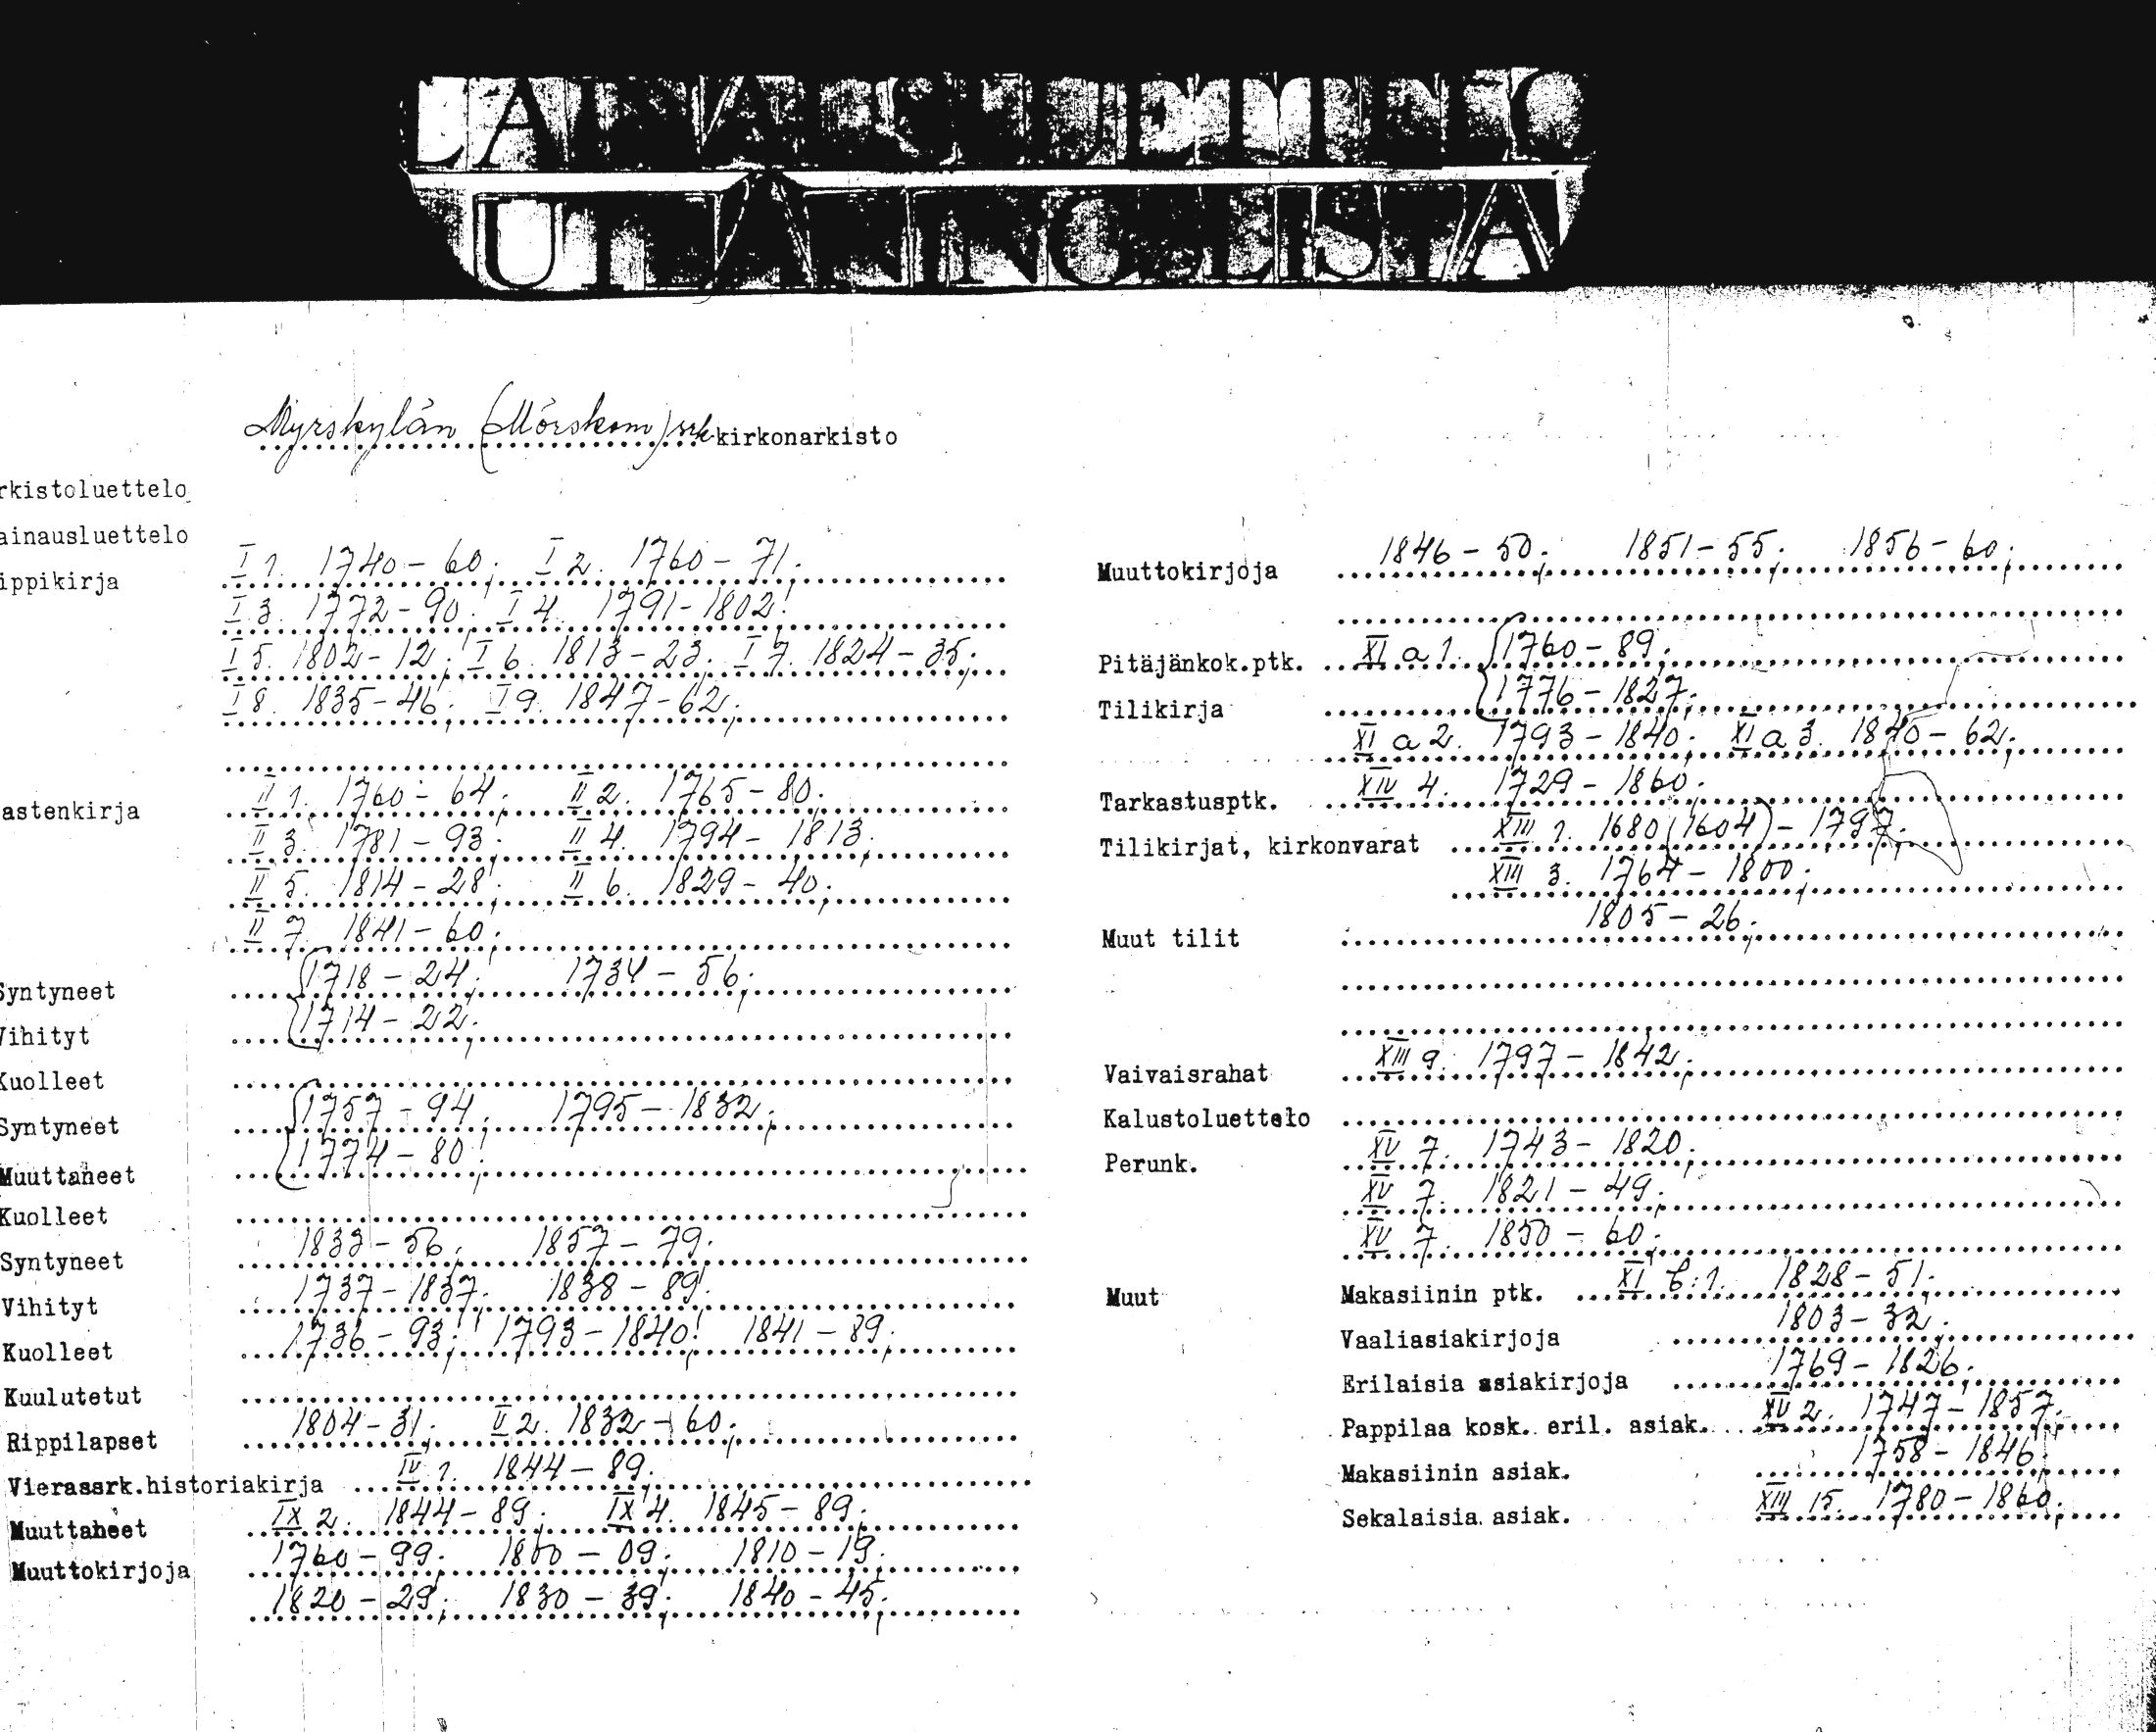 UTLÅNINGSLISTA
Myrskylän (Mörskom) srk kirkonarkisto
rkistoluettelo
ainausluettelo
ippikirja I 1. 1740-60; I 2. 1760-71;
I 3. 1772-90; I 4. 1791-1802;
I 5. 1802-12; I 6. 1813-23; I 7. 1824-35;
I 8. 1835-46; I 9. 1847-62;
astenkirja II 1. 1760-64; II 2. 1765-80;
II 3. 1781-93; II 4. 1794-1813;
II 5. 1814-28; II 6. 1829-40;
II 7. 1841-60;
Syntyneet 1718-24; 1734-56;
Vihityt 1714-22;
Kuolleet
Syntyneet 1757-94; 1795-1832;
Muuttaneet 1774-80;
Kuolleet
Syntyneet 1833-56; 1857-79;
Vihityt 1737-1837; 1838-89;
Kuolleet 1736-93; 1793-1840; 1841-89;
Kuulutetut
Rippilapset 1804-31; V 2. 1832-60;
Vierassrk.historiakirja IV 1. 1844-89;
Muuttaneet IX 2. 1844-89; IX 4. 1845-89;
Muuttokirjoja 1760-99; 1800-09; 1810-19;
1820-29; 1830-39; 1840-45;
Muuttokirjoja 1846-50; 1851-55; 1856-60;
Pitäjänkok.ptk. XI a 1. 1760-89;
Tilikirja 1776-1827;
XI a 2. 1793-1840; XI a 3. 1840-62;
Tarkastusptk. XIV 4. 1729-1860;
Tilikirjat, kirkonvarat XIII 1. 1680(1604)-1797;
XIII 3. 1764-1800;
Muut tilit 1805-26;
Vaivaisrahat XIII 9. 1797-1842;
Kalustoluettelo
Perunk. XV 7. 1743-1820;
XV 7. 1821-49;
XV 7. 1850-60;
Muut Makasiinin ptk. XI b:1. 1828-51;
Vaaliasiakirjoja 1803-32;
Erilaisia asiakirjoja 1769-1826;
Pappilaa kosk. eril. asiak. XV 2. 1747-1857;
Makasiinin asiak. 1758-1846;
Sekalaisia asiak. XIII 15. 1780-1860;